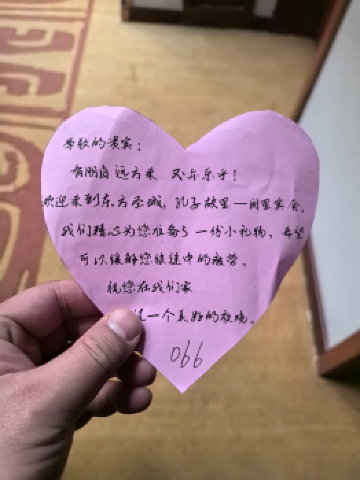 尊敬的贵宾：
有朋自远方来 不亦乐乎！
欢迎来到东方圣城，孔子故里—阙里宾舍。
我们精心为您准备了一份小礼物，希望
可以缓解您旅途中的疲劳。
祝您在我们家
一个美好的夜晚。
066